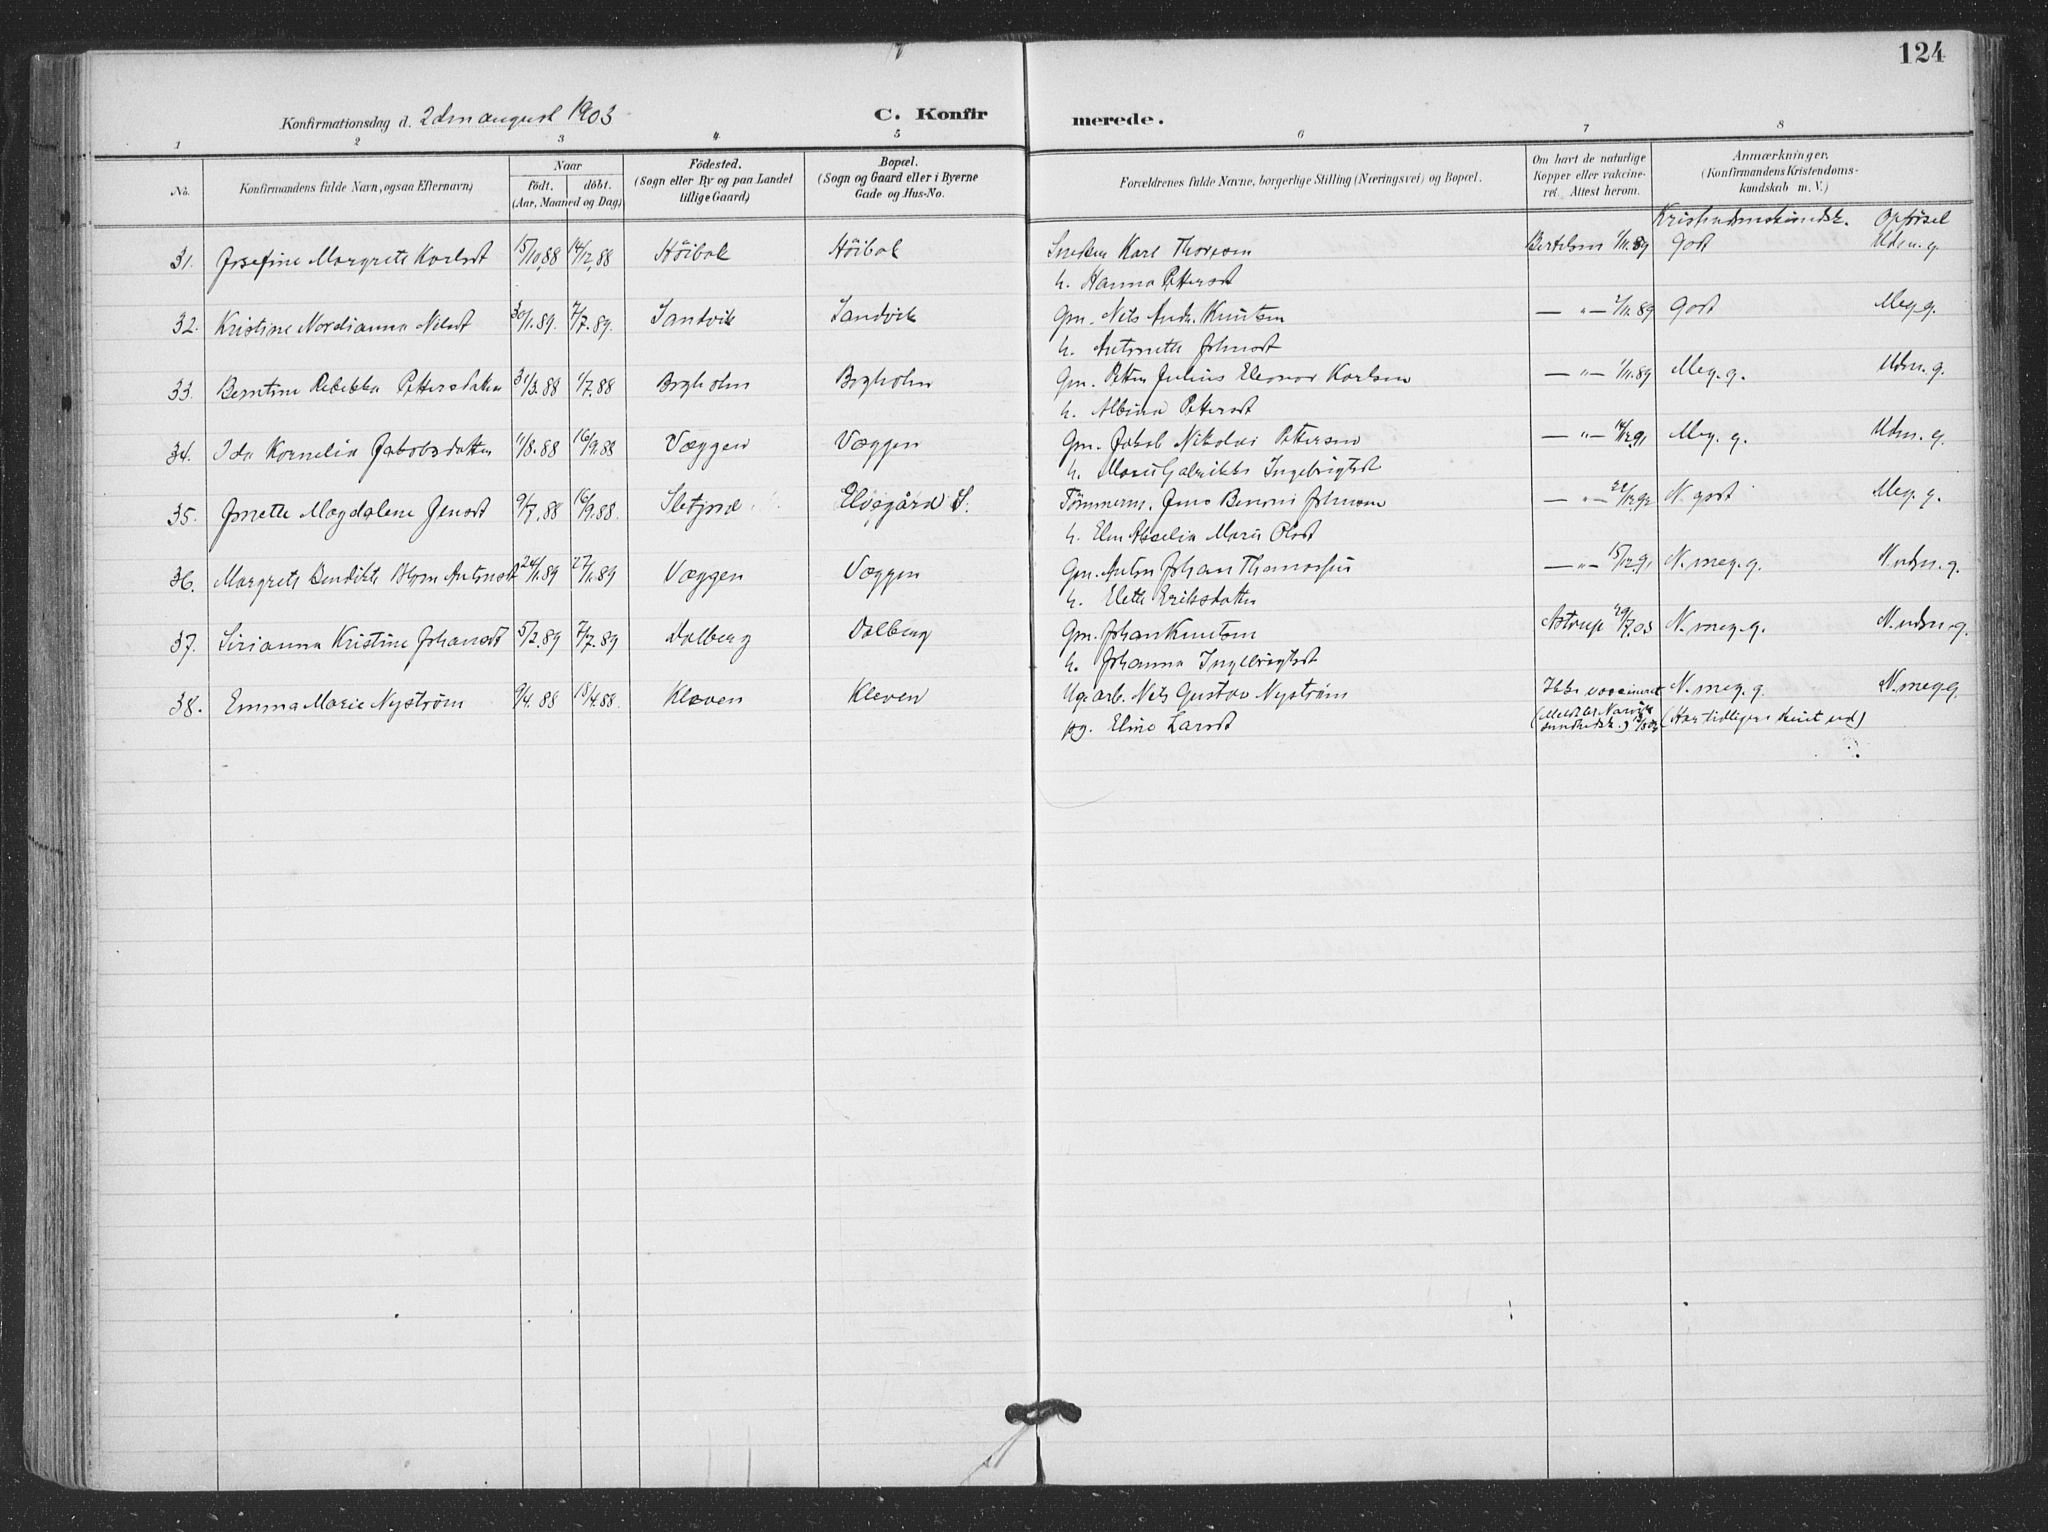 124
Konfirmationsdag d. 2den august 1903 C. Konfirmerede.
1 2 3 4 5 6 7 8
No.
Konfirmandens fulde Navn, ogsaa Efternavn)
Naar
födt. döbt.
(Aar, Maaned og Dag)
Födested.
(Sogn eller By og paa Landet
tillige Gaard)
Bopæl.
(Sogn og Gaard eller i Byerne
Gade og Hus-No.
Forældrenes fulde Navne, borgerlige Stilling (Næringsvei) og Bopæl.
Om havt de naturlige
Kopper eller vakcine-
ret. Attest herom.
Anmærkninger.
(Konfirmandens Kristendoms-
kundskab m. V.)
Kristendomskundsk. Opførsel
31. Josefine Margrete Karlsdt 15/10.88 14/12.88 Höibak Höibak Snekker Karl Thoresen Bertelsen 1/11.89 Godt Udm. g.
h. Hanna Pettersdt
32. Kristine Nordianna Nilsdt 30/1.89. 7/7.89. Sandvik Sandvik Gm. Nils Andr. Knutsen — " — 2/11.89 Godt Meg. g.
h. Antonette Johnsdt
33. Berntine Rebekka Pettersdatter 31/3.88 1/7.88 Bogholm Bogholm Gm. Petter Julius Eleonor Karlsen — " — 1/11.89 Meg. g. Udm. g.
h. Albina Pettersdt
34. Ida Kornelia Jakobsdatter 11/8.88 16/9.88 Væggen Væggen Gm. Jakob Nikolai Pettersen — " — 14/12.91 Meg. g. Udm. g.
h. Marie Ingebrigtsdt
35. Jonette Magdalene Jensdt 9/7.88 16/9.88. Sletjord Elvegård S. Tömmerm. Jens Benoni Johnsen — " — N. godt Meg. g.
h. Marie Olsdt
36. Margrete Bendikte Antonsdt 24/1.89 27/1.89 Væggen Væggen Gm. Anton Johan — " — 15/12.91 N. meg. g. N. udm. g.
h. Eriksdatter
37. Sirianna Kristine Johansdt 5/2.89 7/7.89 Dalberg Dalberg Gm. Johan Knutsen Astrup 29/7.03 N. meg. g. N. udm. g.
h. Johanna Ingebrigtsdt
38. Emma Marie Nyström 9/4.88 15/4.88 Kleven Kleven arb. Nils Gustav Nyström Ikke vaccineret N. meg. g. N. meg. g.
pg. Eline Larsdt (Har tidligere ud)